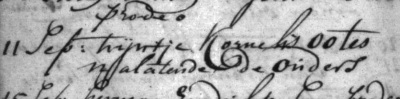 prodeo
11 Sep: trijntje Kornelis ootes
nalatende de ouders